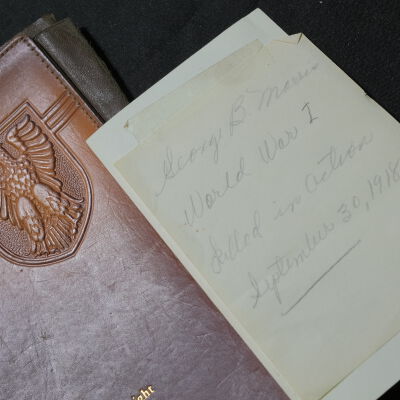 George B. Morris
World War I
Killed in action
September 30, 1918
ight